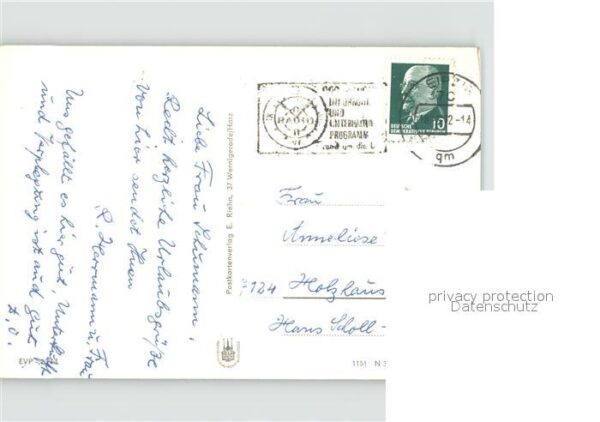 Liebe Frau Schumann,
Recht herzliche Urlaubsgrüße
von hier sendet Ihnen
R. Herrmann u. Frau
Uns gefällt es hier gut, Unterkunft
und Verpflegung ist auch gut
D.O.
EVP
Postkartenverlag E. Riehn, 37 Wernigerode/Harz
RADIO
UND
PROGRAMM
rund um die
DEUTSCHE
DEMOKRATISCHE REPUBLIK
10
2-14
qm
Frau
Anneliese
7124 Holzhaus
Hans Scholl-
1151 N
privacy protection
Datenschutz